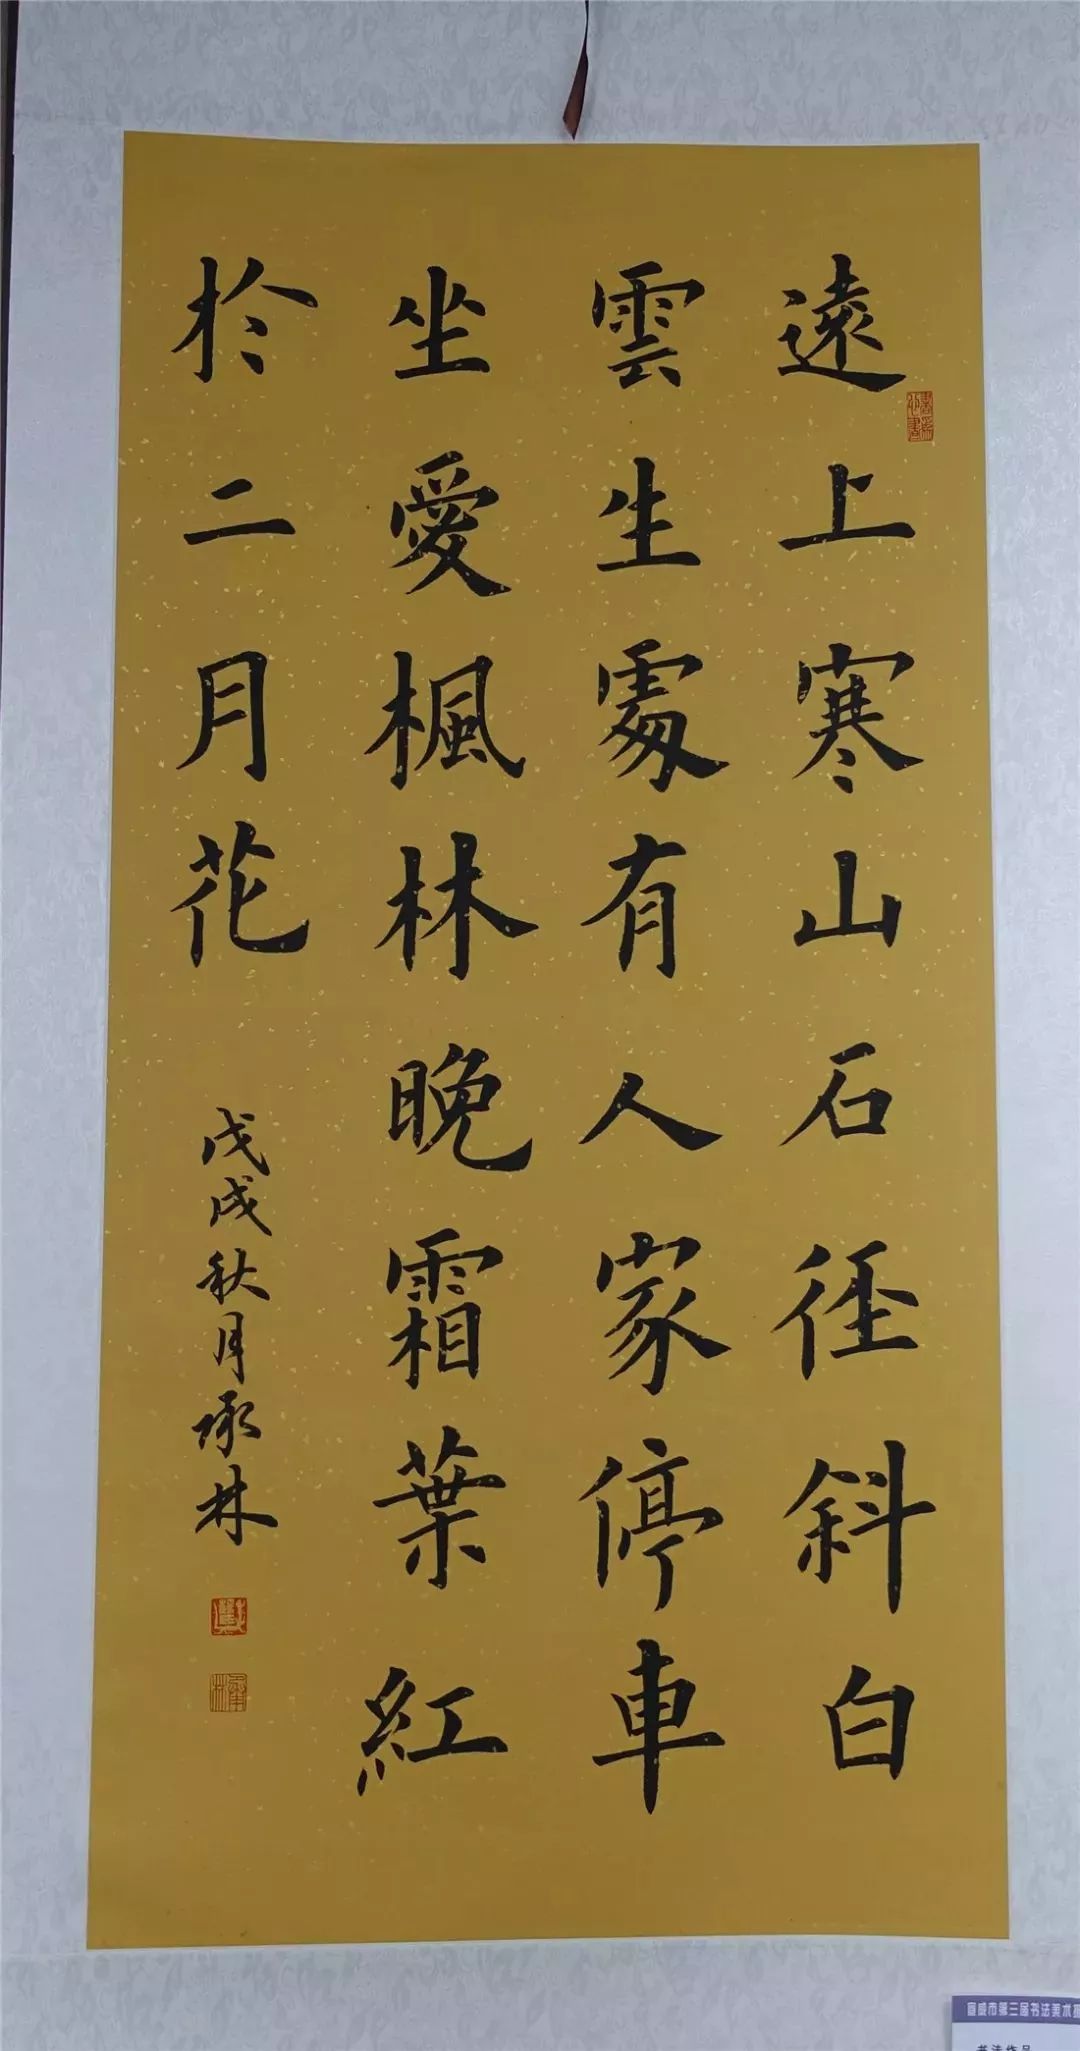 遠上寒山石径斜白
雲生處有人家停車
坐愛楓林晚霜葉紅
於二月花
戊戌秋月承林
宣威市第三届书法美术
书法作品